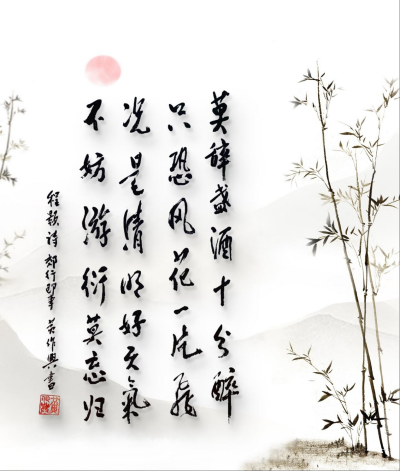 莫辭盏酒十分醉
只恐风花一片飛
况是清明好天氣
不妨游衍莫忘归
程颢诗 郊行即事 作興書